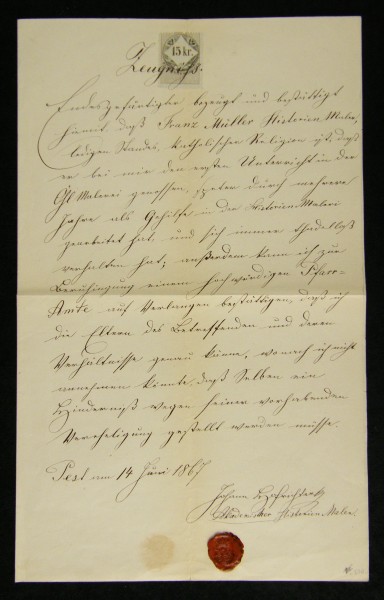 15 kr.
Zeugniß.
Endesgefertigter bezeugt und bestättigt
hiemit, daß Franz Müller Historien Maler,
ledigen Standes, Katholischer Religion ist, daß
er bei mir den ersten Unterricht in der
Öhl Malerei genossen, speter durch mehrere
Jahre als Gehilfe in der Historien Malerei
gearbeitet hat, und sich immer thadelloß
verhalten hat; außerdem kann ich zur
Beruhigung einem hochwürdigen Pfarr-
Amte auf Verlangen bestättigen, daß ich
die Eltern des Betreffenden und deren
Verhältnisse genau kenne, wonach ich nicht
annehmen könnte, daß Selben ein
Hinderniß wegen seiner vorhabenden
Vereheligung gestellt werden müsse.
Pest am 14 Juni 1867
Johann
Historien Maler